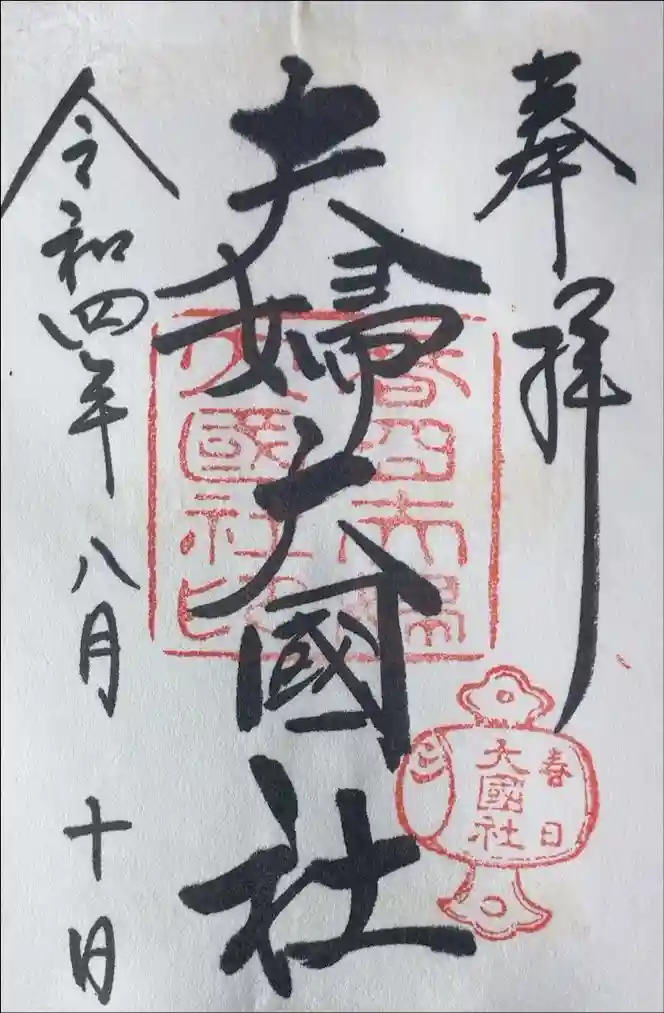 奉拝
夫婦大國社
春日夫婦
大國社印
春日
大國社
令和四年 八月 十日